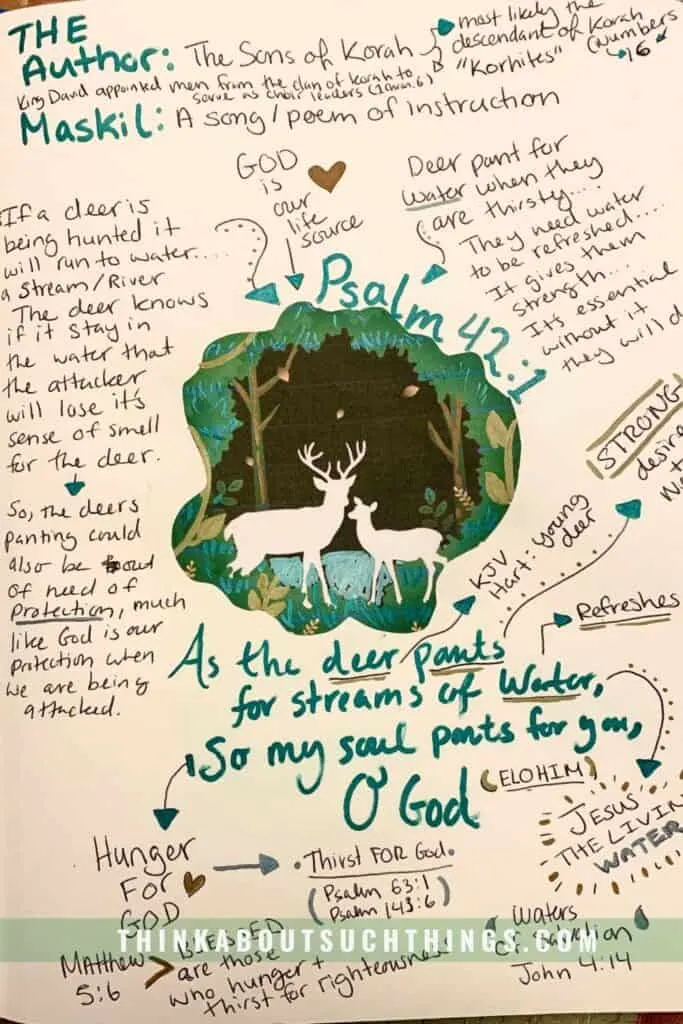 THE
Author: The Sons of Korah
most likely the
descendant of Korah
"Korhites" (Numbers
16
King David appointed men from the clan of Korah to
serve as choir leaders
Maskil: A song/poem of instruction
GOD
is
our
life
source
Deer pant for
water when they
are thirsty....
They need water
to be refreshed....
It gives them
strength...
It's essential
without it
they will d
If a deer is
being hunted it
will run to water....
a stream/River
The deer knows
if it stay in
the water that
the attacker
will lose it's
sense of smell
for the deer.
So, the deers
panting could
also be out
of need of
Protection, much
like God is our
protection when
we are being
attacked.
Psalm 42:1
STRONG
desire
KJV
Hart: young
deer
Refreshes
As the deer pants
for streams of Water,
So my soul pants for you,
O God
(ELOHIM)
JESUS
THE LIVIN
WATER
Hunger
FOR
GOD
Thirst FOR God.
(Psalm 63:1
Psalm 143:6)
Matthew
5:6
BLESSED
are those
who hunger +
thirst for righteousness
Waters
of Salvation
John 4:14
THINKABOUTSUCHTHINGS.COM